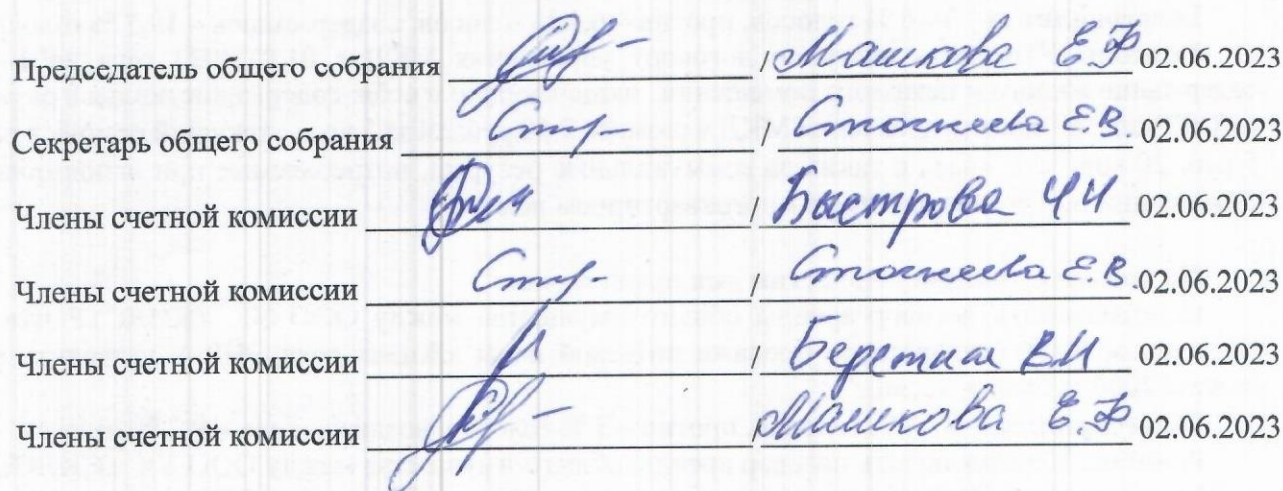 Председатель общего собрания / Машкова Е.Ф 02.06.2023
Секретарь общего собрания / Е.В. 02.06.2023
Члены счетной комиссии / Быстрова 02.06.2023
Члены счетной комиссии / Е.В. 02.06.2023
Члены счетной комиссии / В.И 02.06.2023
Члены счетной комиссии / Машкова Е.Ф 02.06.2023